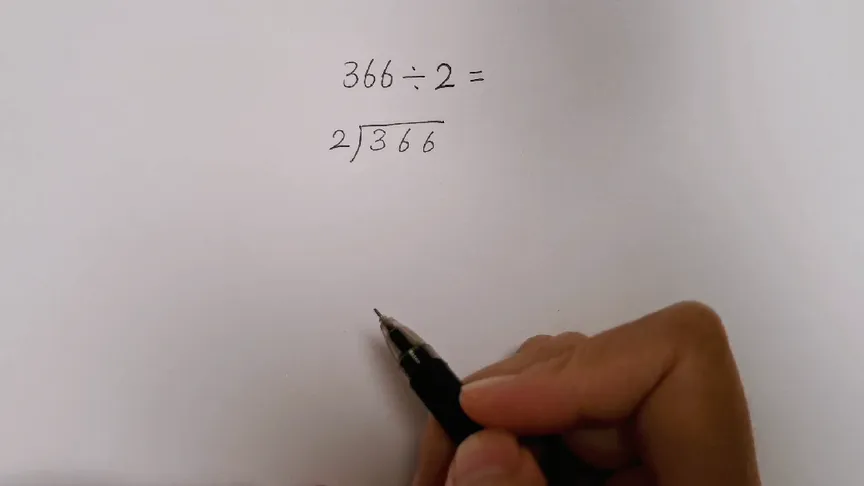 366÷2=
2)366